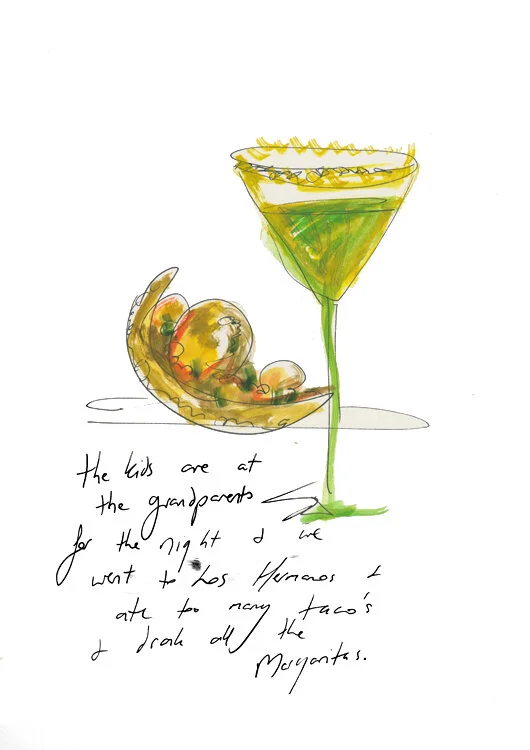 the kids are at
the grandparents
for the night & we
went to Los Hermanos &
ate too many taco's
& drank all the
Margaritas.